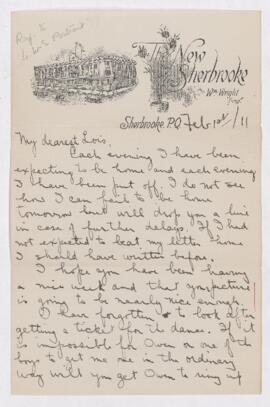 The New
Sherbrooke
Wm Wright
Prop.
Sherbrooke, P.Q. Feb 1st/11
My dearest Lois,
Each evening I have been
expecting to be home and each evening
I have been put off. I do not see
how I can fail to be home
tomorrow but will drop you a line
in case of further delays. If I had
not expected to beat my letter home
I should have written before.
I hope you have been having
a nice week and that your picture
is going to be nearly nice enough.
I have forgotten to look after
getting a ticket for the dance. If it
is impossible for Owen or one of the
boys to get me one in the ordinary
way will you get Owen to ring up